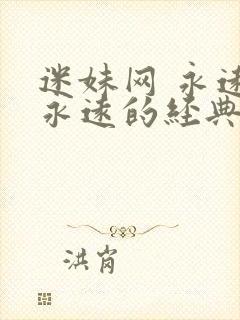 迷妹网 永远
永远的经典
洪肖